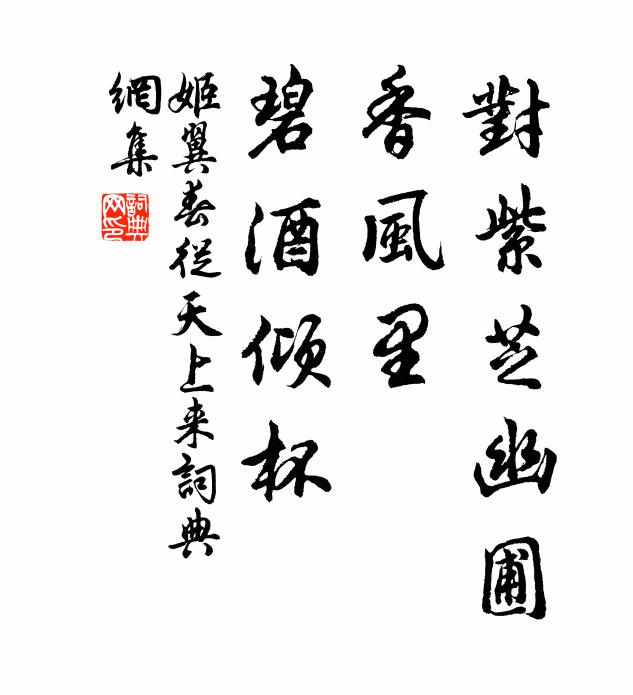 對紫芝幽圃
香風里
碧酒傾杯
姬翼春從天上来詞典
網集
詞典
网印